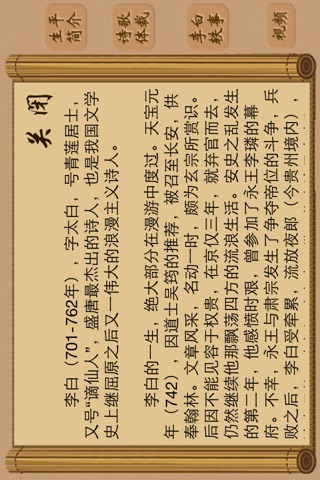 生平
简介
诗歌
体裁
李白
轶事
视频
关闭
李白（701-762年），字太白，号青莲居士，
又号“谪仙人”，盛唐最杰出的诗人，也是我国文学
史上继屈原之后又一伟大的浪漫主义诗人。
李白的一生，绝大部分在漫游中度过。天宝元
年（742），因道士吴筠的推荐，被召至长安，供
奉翰林。文章风采，名动一时，颇为玄宗所赏识。
后因不能见容于权贵，在京仅三年，就弃官而去，
仍然继续他那飘荡四方的流浪生活。安史之乱发生
的第二年，他感愤时艰，曾参加了永王李璘的幕
府。不幸，永王与肃宗发生了争夺帝位的斗争，兵
败之后，李白受牵累，流放夜郎（今贵州境内），